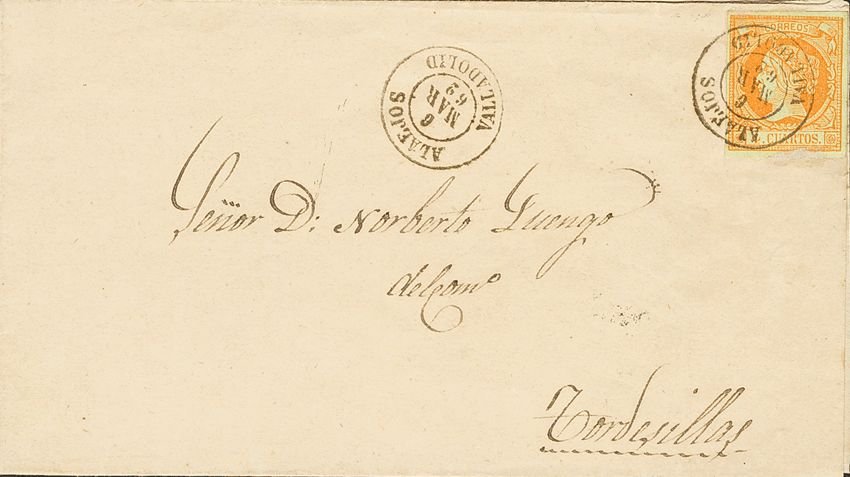 ALAEJOS
6
MAR
62
VALLADOLID
CORREOS
ALAEJOS
6
MAR
62
VALLADOLID
CUARTOS.
Señor D: Norberto Luengo
del Comº
Tordesillas